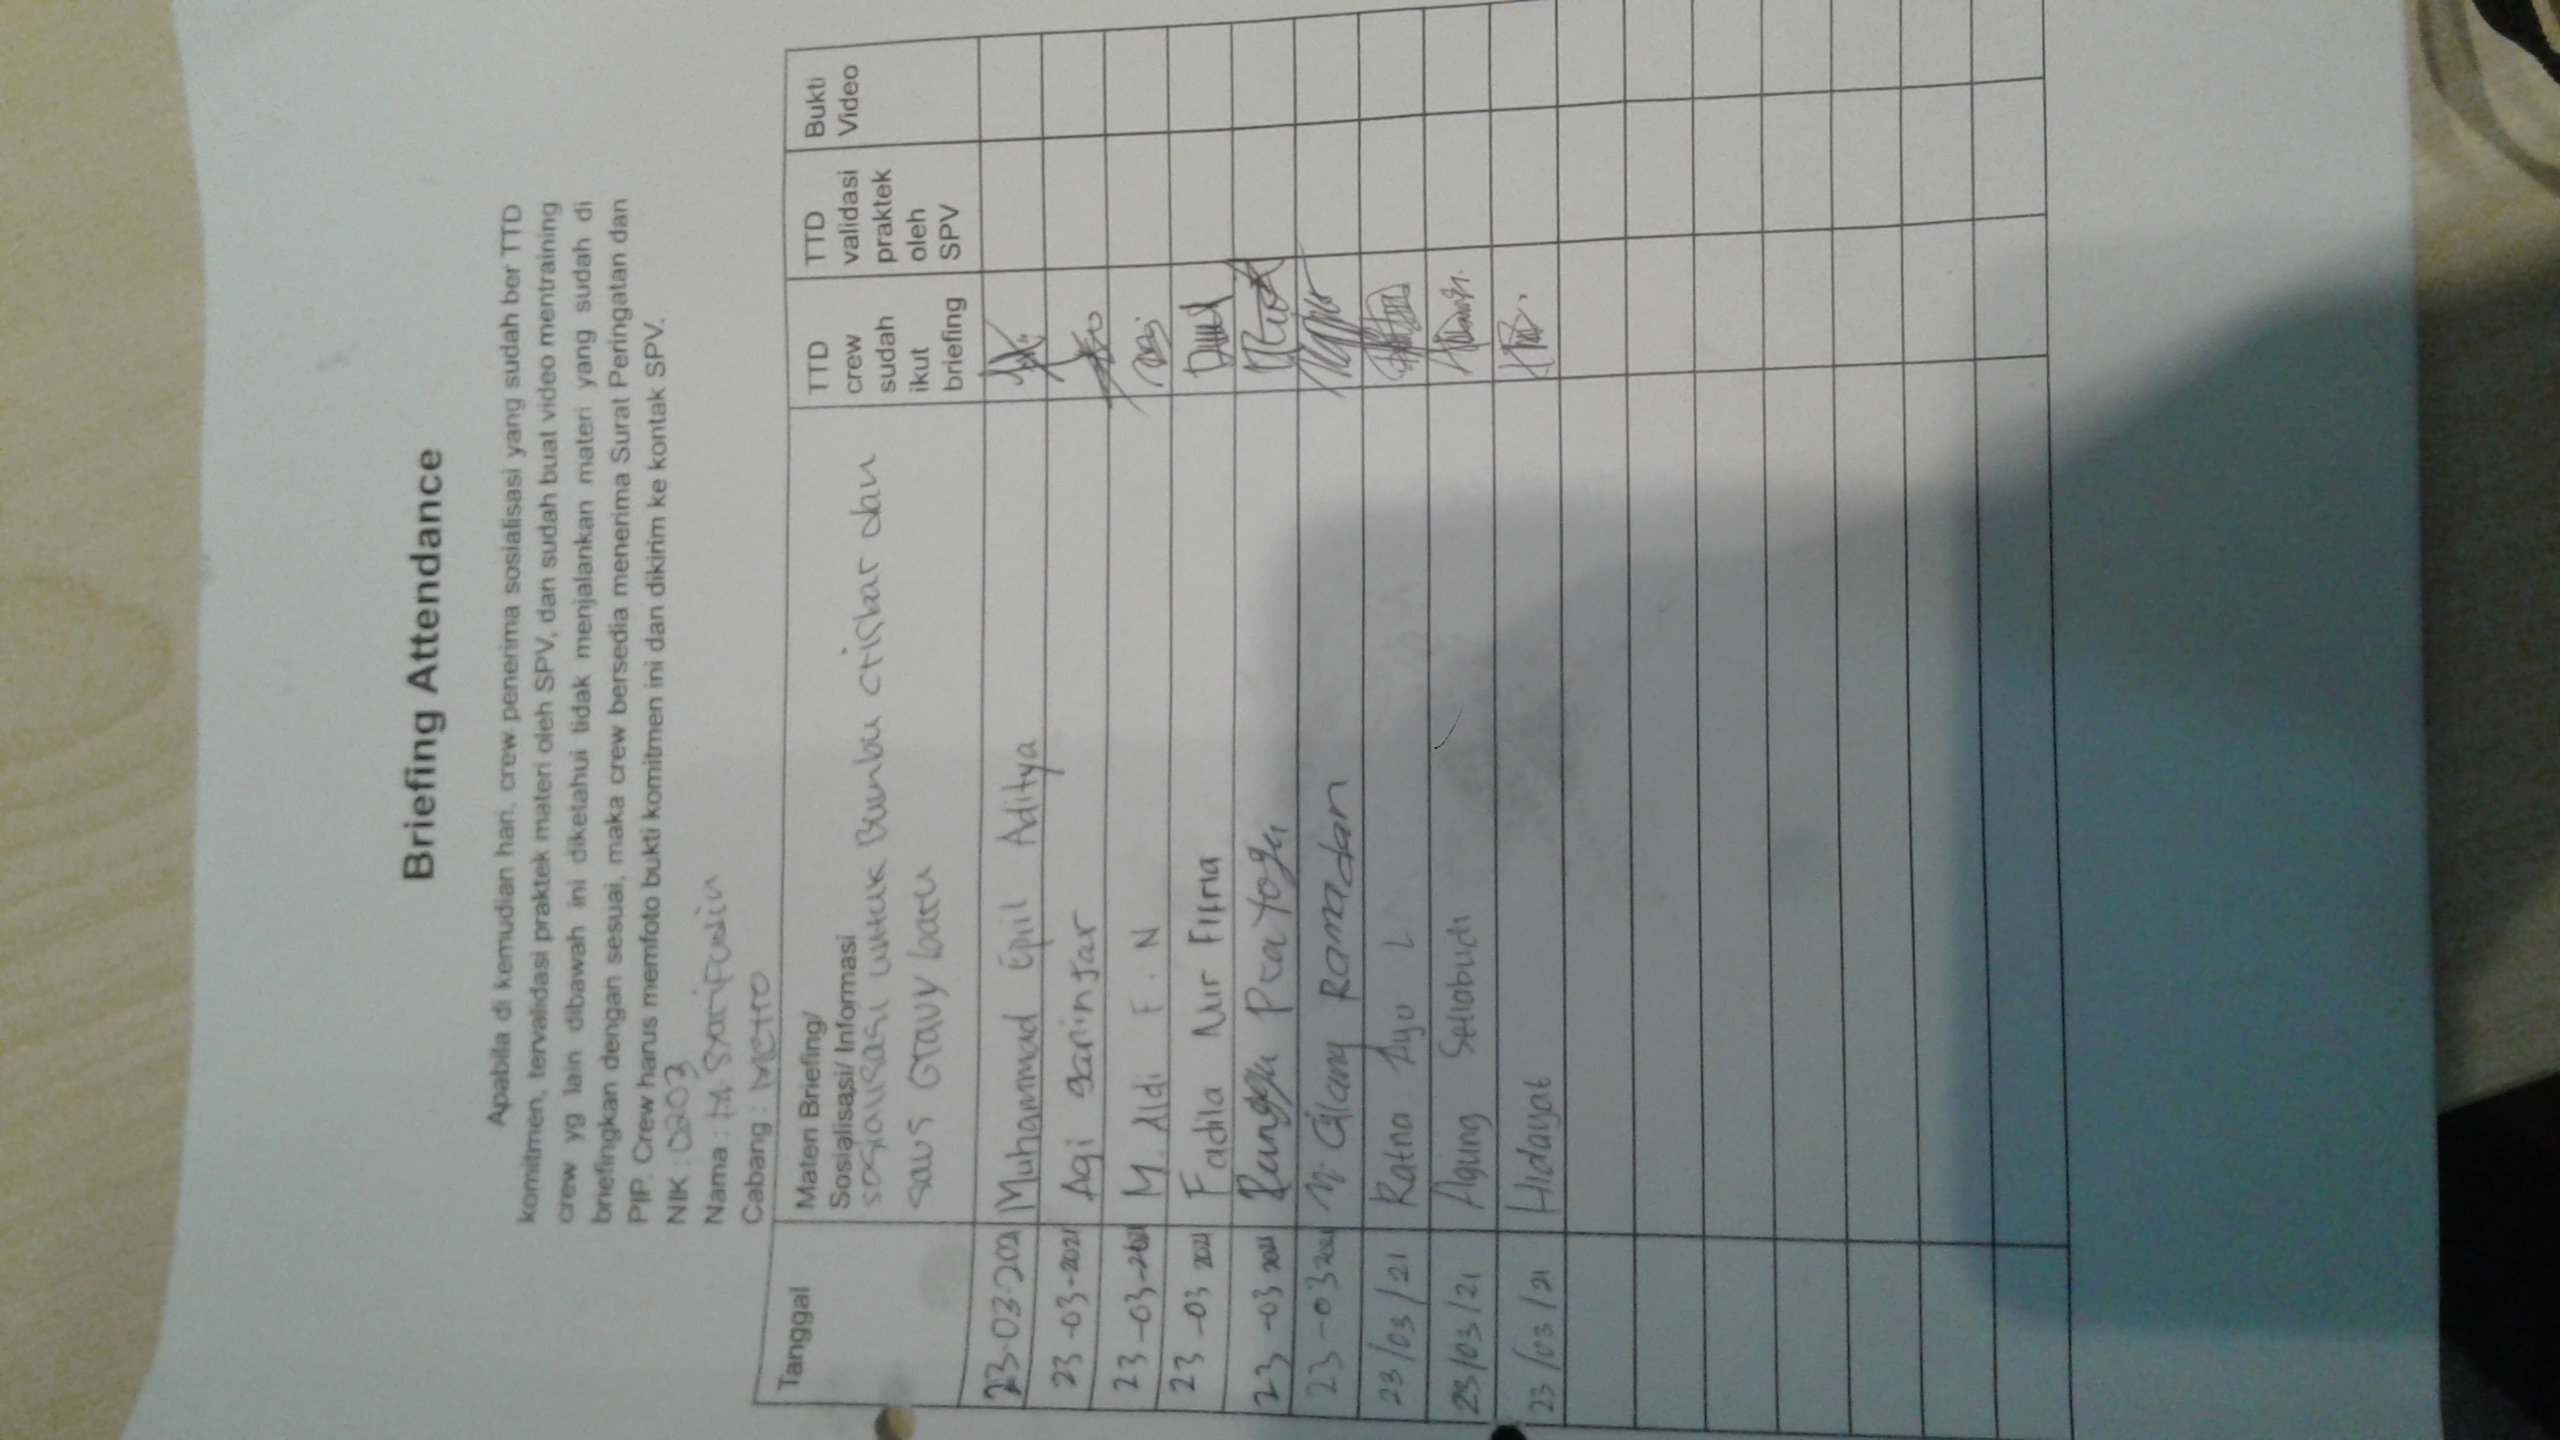 Briefing Attendance
Apabila di kemudian hari, crew penerima sosialisasi yang sudah ber TTD
komitmen, tervalidasi praktek materi oleh SPV, dan sudah buat video mentraining
crew yg lain dibawah ini diketahui tidak menjalankan materi yang sudah di
briefingkan dengan sesuai, maka crew bersedia menerima Surat Peringatan dan
PIP. Crew harus memfoto bukti komitmen ini dan dikirim ke kontak SPV.
NIK : 0203
Nama : M Syarifudin
Cabang : Metro
Tanggal
Materi Briefing/
Sosialisasi/ Informasi
sosialisasi untuk Bumbu crisbar dan
saus Gravy baru
TTD
crew
sudah
ikut
briefing
TTD
validasi
praktek
oleh
SPV
Bukti
Video
23-03-2021 Muhammad Epril Aditya
23-03-2021 Agi
23-03-2021 M. Aldi F. N
23-03 2021 Fadila Nur Fitria
23-03 2021 Rangga Pratoga
23-03 2021 M. Gilang Ramadan
23/03/21 Ratna Ayu L
23/03/21 Agung Setiabudi
23/03/21 Hidayat